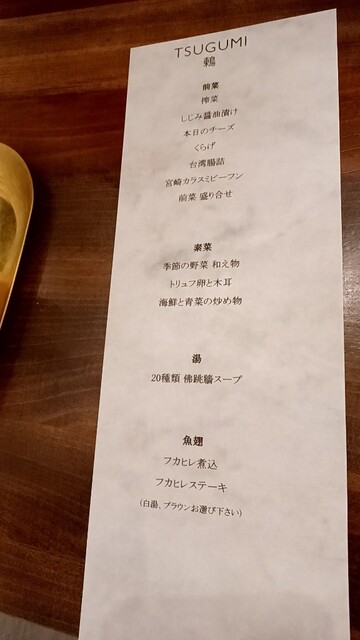 TSUGUMI
鶫
前菜
搾菜
しじみ醤油漬け
本日のチーズ
くらげ
台湾腸詰
宮崎カラスミビーフン
前菜 盛り合せ
素菜
季節の野菜 和え物
トリュフ卵と木耳
海鮮と青菜の炒め物
湯
20種類 佛跳牆スープ
魚翅
フカヒレ煮込
フカヒレステーキ
(白湯、ブラウンお選び下さい)